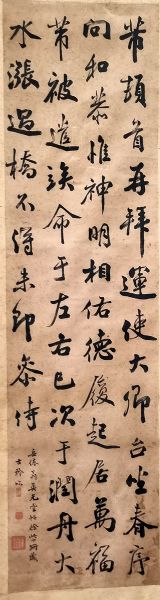 芾頓首再拜運使大卿台坐春序
向和恭惟神明相佑德履起居萬福
芾被遣竢命于左右已次于潤丹大
水漲過橋不得未即參侍